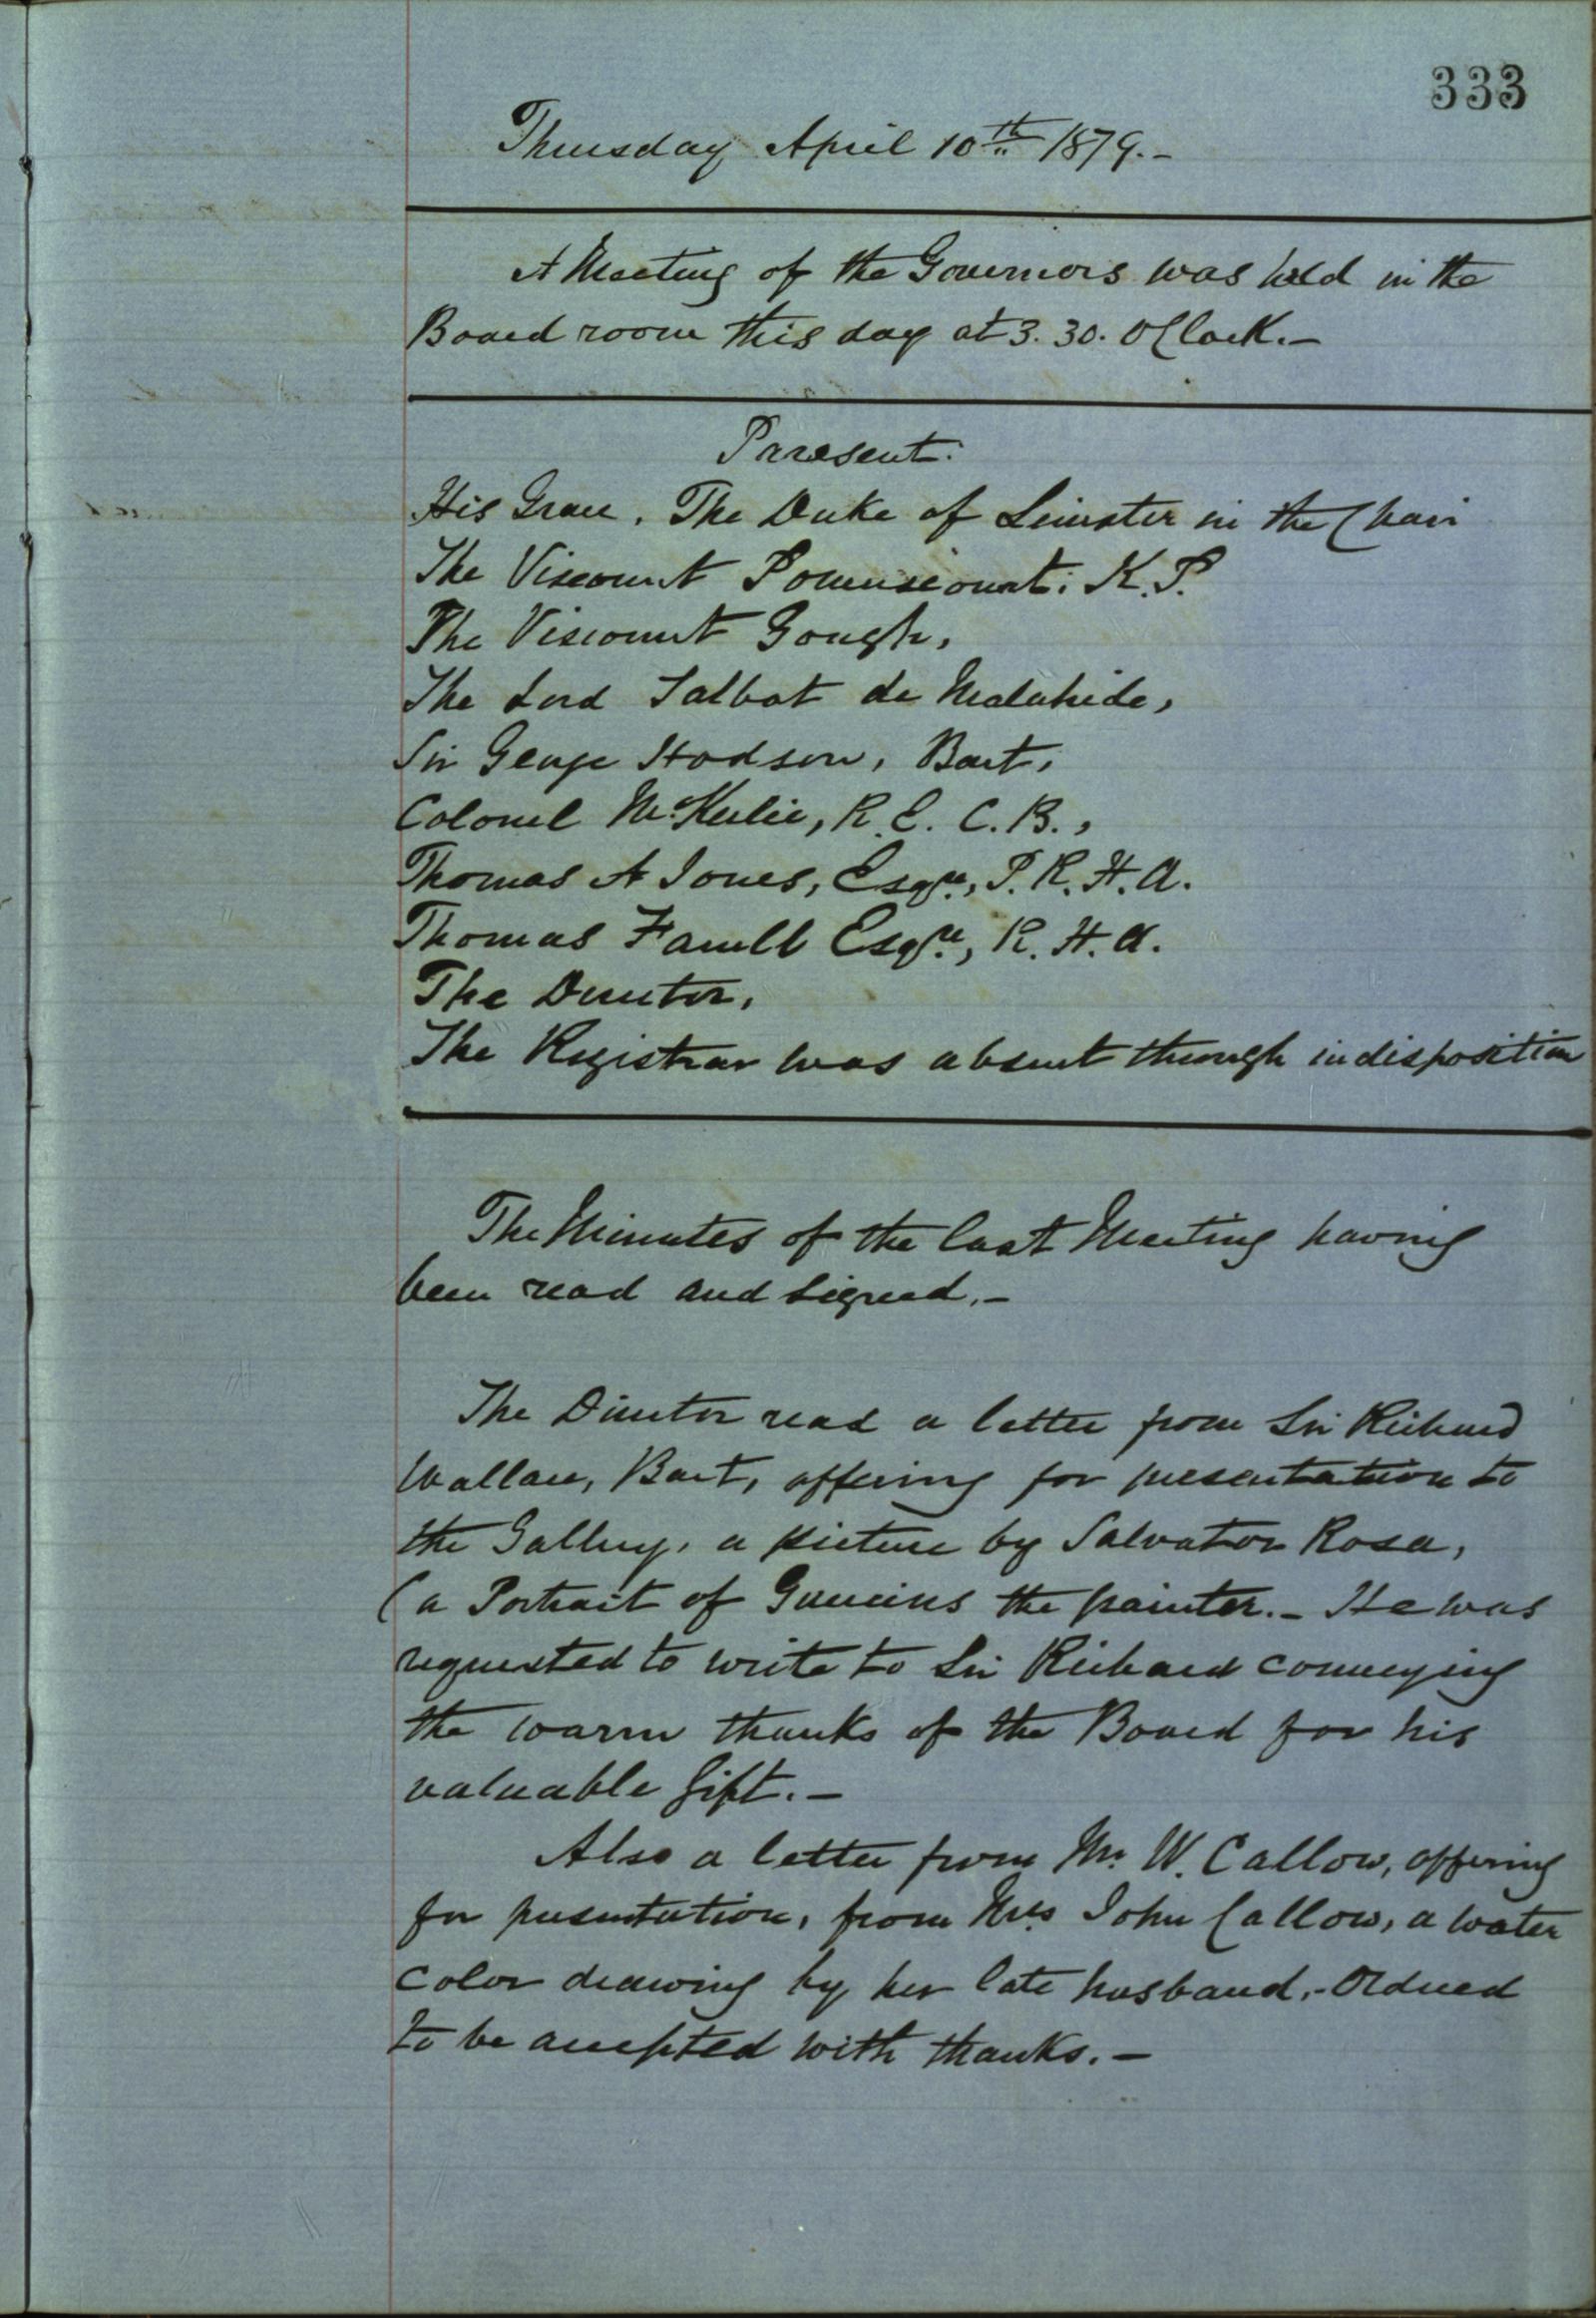 333
Thursday April 10th 1879.-
A Meeting of the Governors was held in the
Board room this day at 3.30. O'Clock.-
Present:
His Grace, The Duke of Leinster in the Chair
The Viscount Powerscourt: K.P.
The Viscount Gough,
The Lord Talbot de Malahide,
Sir George Hodson, Bart,
Colonel McKerlie, R.E. C.B.,
Thomas A Jones, Esqre, P.R.H.A.
Thomas Farrell Esqre, R.H.A.
The Director,
The Registrar was absent through indisposition
The Minutes of the last Meeting having
been read and signed.-
The Director read a letter from Sir Richard
Wallace, Bart, offering for presentation to
the Gallery, a picture by Salvator Rosa,
(a Portrait of the painter.- He was
requested to write to Sir Richard conveying
the warm thanks of the Board for his
valuable gift.-
Also a letter from Mr W. Callow, offering
for presentation, from Mrs John Callow, a water
color drawing by her late husband,- Ordered
to be accepted with thanks.-